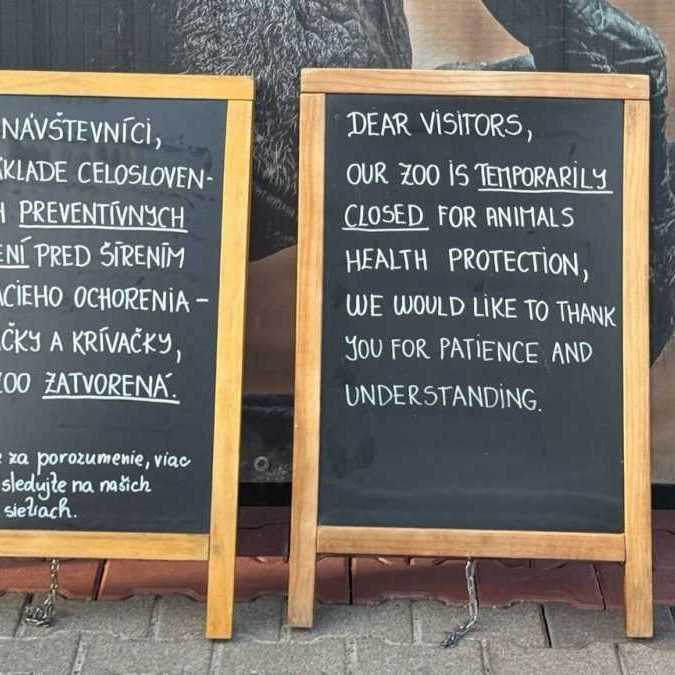 NÁVŠTEVNÍCI,
CELOSLOVEN-
PREVENTÍVNYCH
PRED ŠÍRENÍM
OCHORENIA -
A KRÍVAČKY,
ZOO ZATVORENÁ.
za porozumenie, viac
sledujte na našich
sieťach.
DEAR VISITORS,
OUR ZOO IS TEMPORARILY
CLOSED FOR ANIMALS
HEALTH PROTECTION,
WE WOULD LIKE TO THANK
YOU FOR PATIENCE AND
UNDERSTANDING.